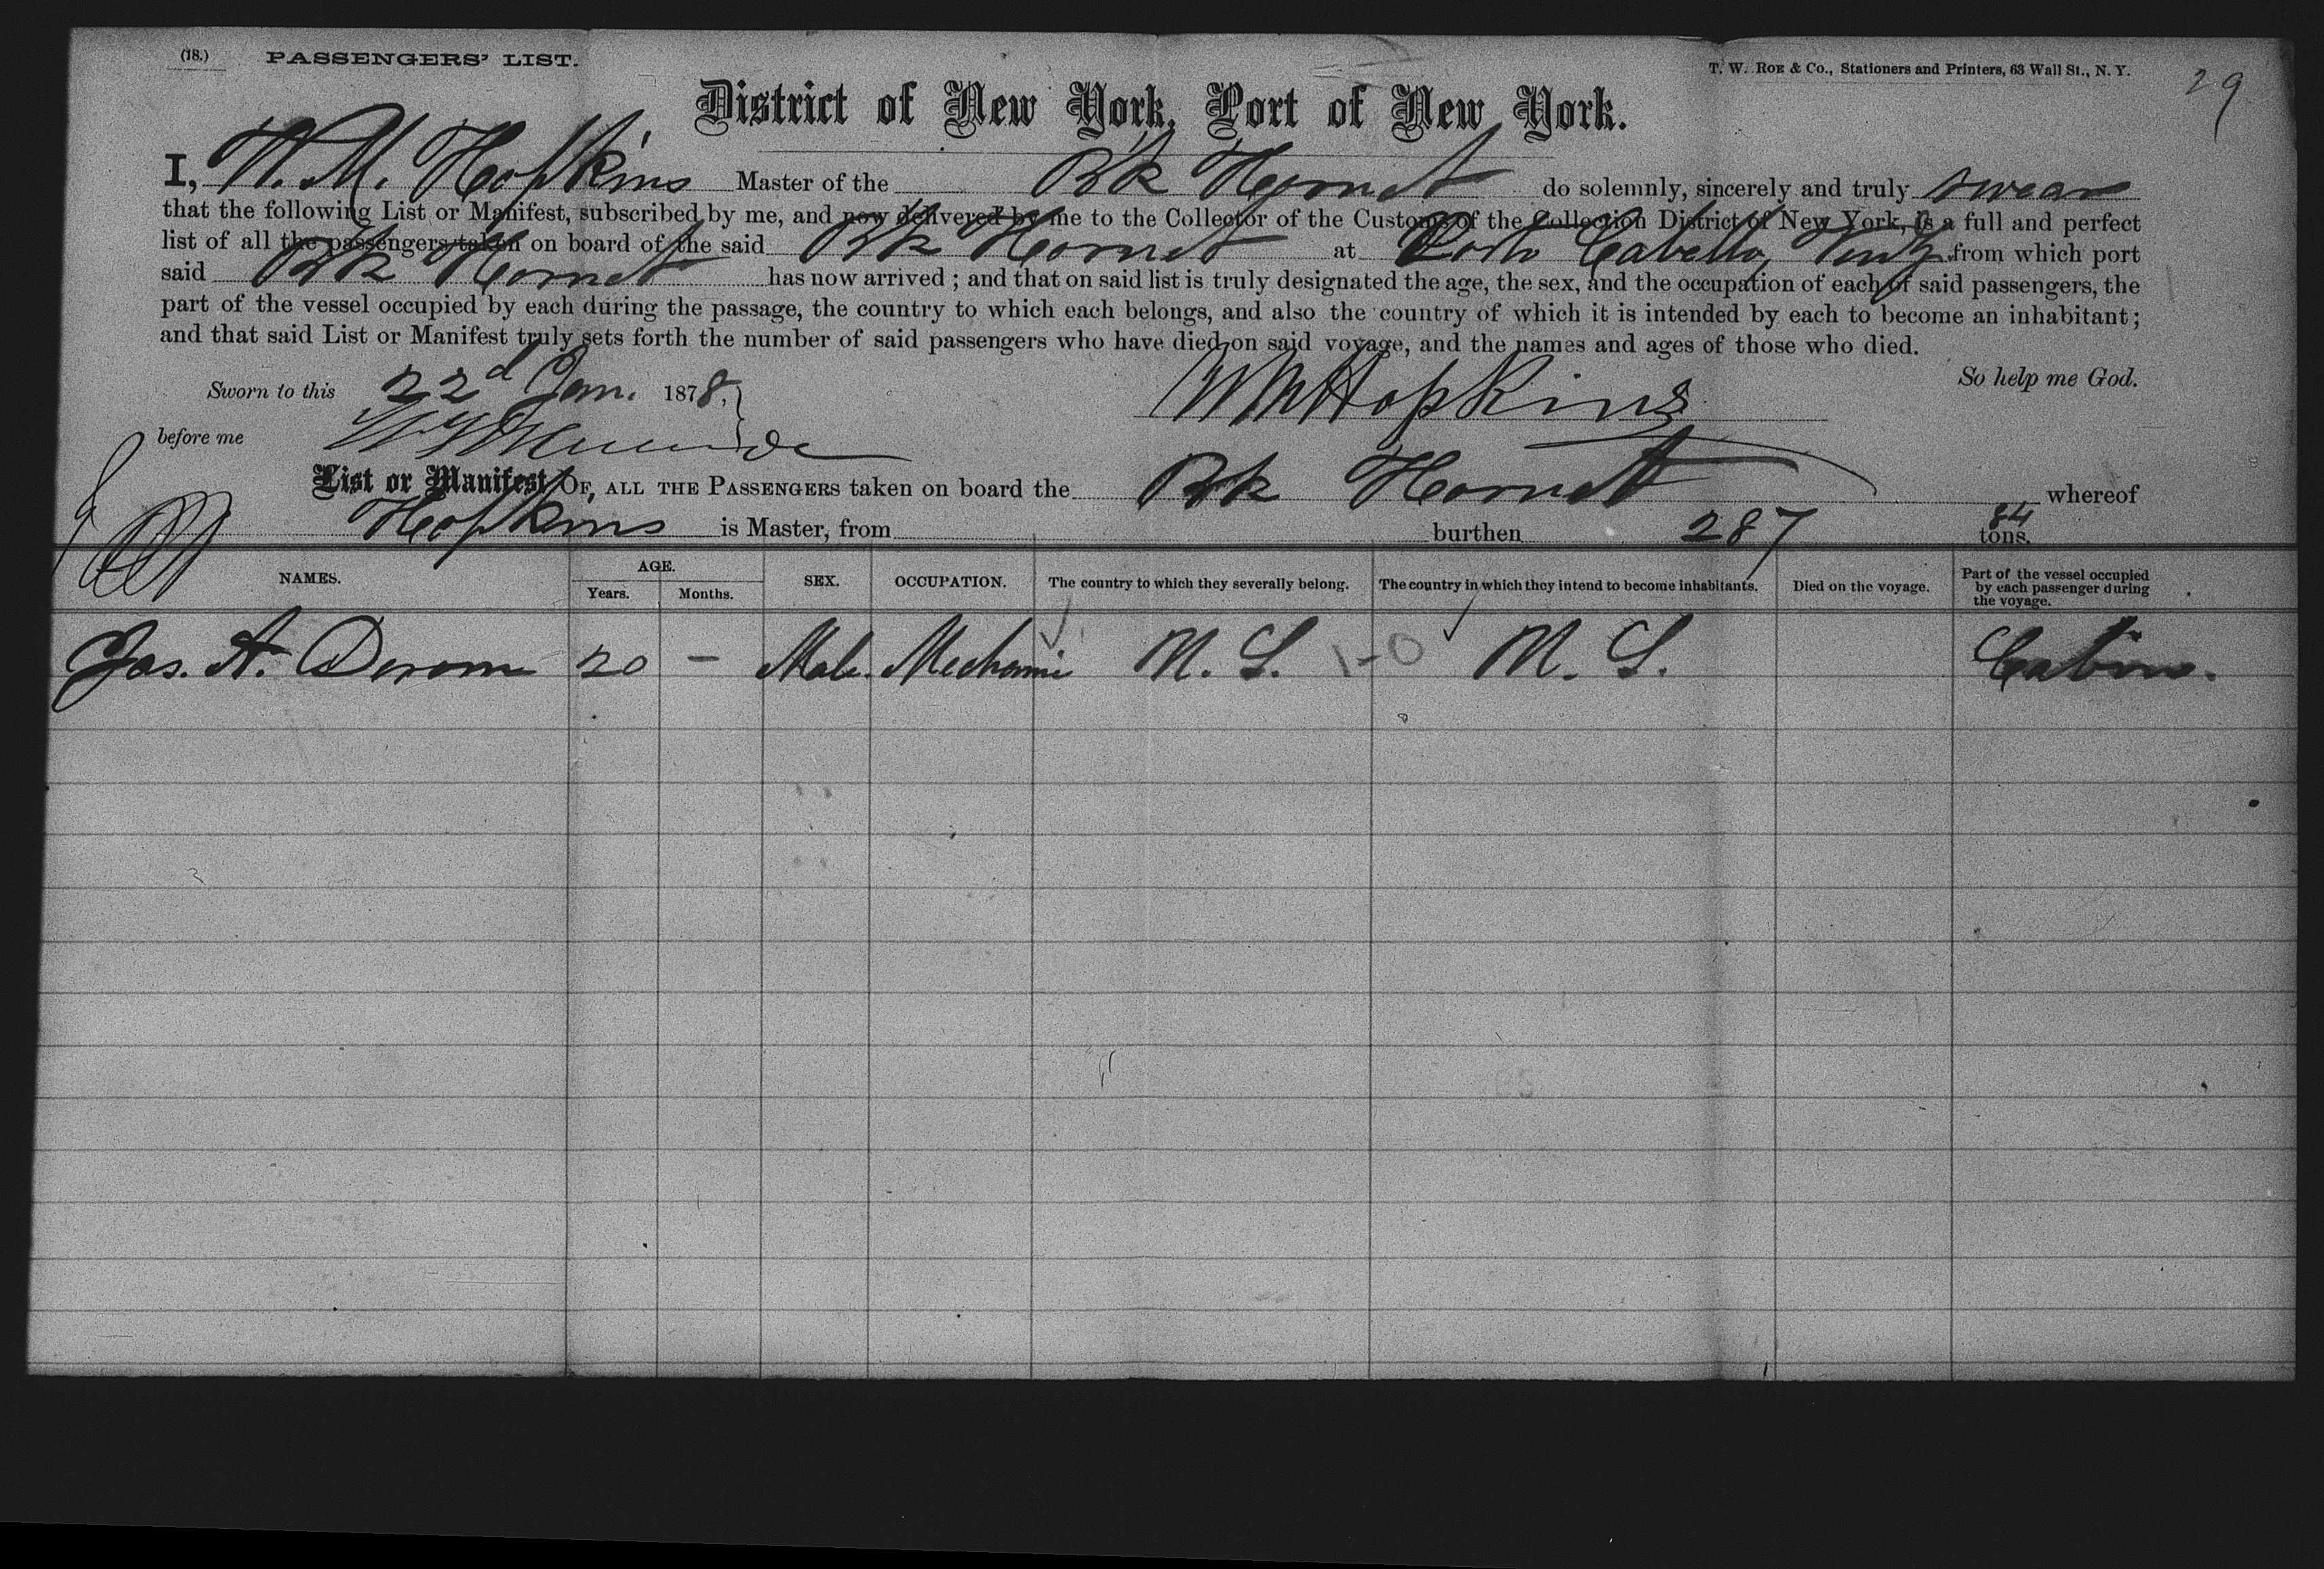 (18.) PASSENGERS' LIST.
T. W. ROE & Co., Stationers and Printers, 63 Wall St., N. Y.
29
District of New York, Port of New York.
I, W. M. Hopkins Master of the Bk Hornet do solemnly, sincerely and truly swear
that the following List or Manifest, subscribed by me, and now delivered by me to the Collector of the Customs of the Collection District of New York, is a full and perfect
list of all the passengers taken on board of the said Bk Hornet at Porto Cabello, from which port
said Bk Hornet has now arrived; and that on said list is truly designated the age, the sex, and the occupation of each of said passengers, the
part of the vessel occupied by each during the passage, the country to which each belongs, and also the country of which it is intended by each to become an inhabitant;
and that said List or Manifest truly sets forth the number of said passengers who have died on said voyage, and the names and ages of those who died.
So help me God.
Sworn to this 22d Jan. 1878,
WM Hopkins
before me
List or Manifest OF, ALL THE PASSENGERS taken on board the Bk Hornet whereof
Hopkins is Master, from burthen 287 84 tons.
NAMES. AGE. Years. Months. SEX. OCCUPATION. The country to which they severally belong. The country in which they intend to become inhabitants. Died on the voyage. Part of the vessel occupied by each passenger during the voyage.
Jas. A. 20 – Male. Mechanic U. S. 1-0 U. S. Cabin.